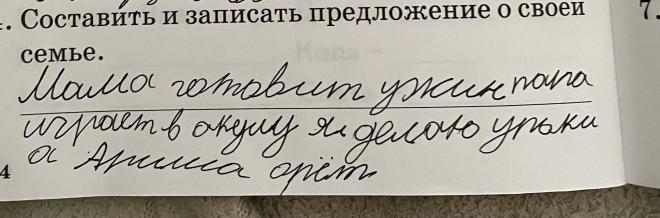 . Составить и записать предложение о своей 7.
семье.
Мама готовит ужин папа
играет в акулу я делаю уроки
4 а Арина орёт